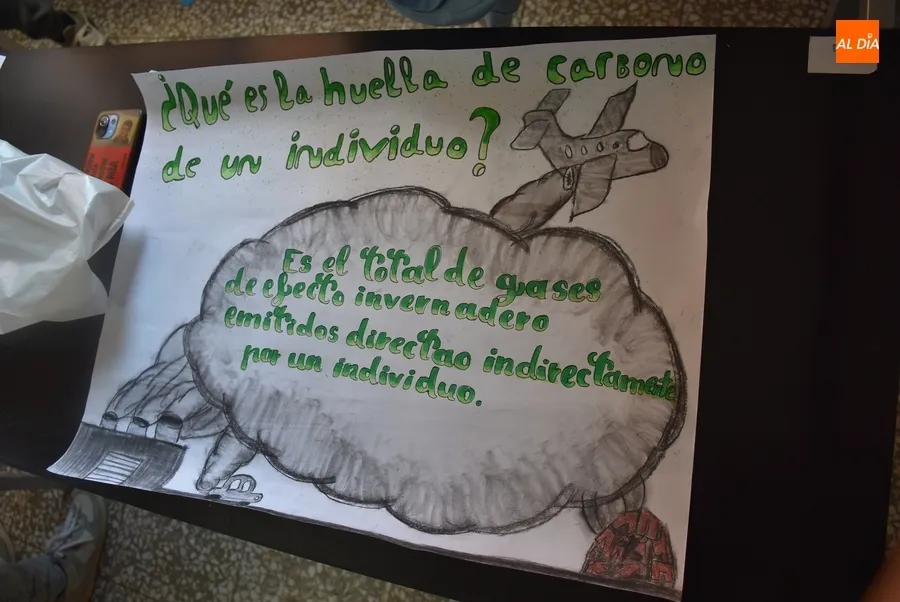 AL DÍA
¿Qué es la huella de carbono
de un individuo?
Es el total de gases
de efecto invernadero
emitidos directao indirectamente
por un individuo.